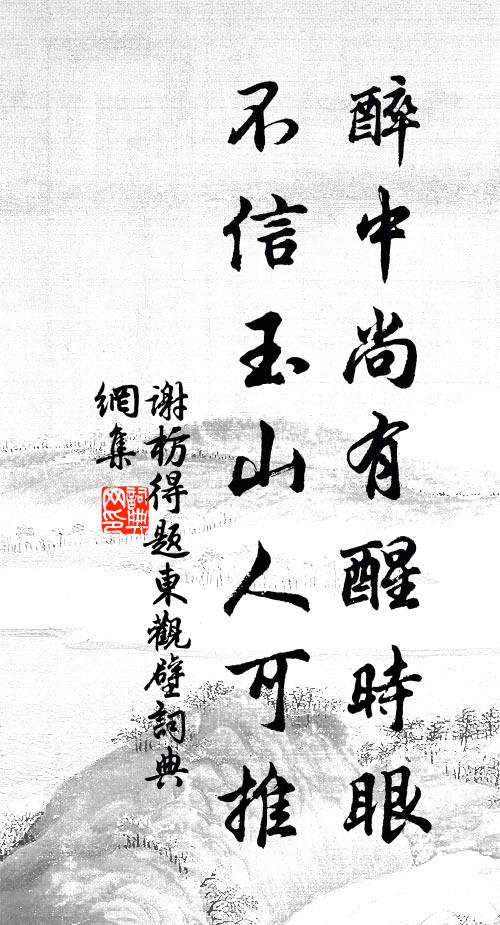 醉中尚有醒時眼
不信玉山人可推
谢枋得題東觀壁詞典
網集
詞典
网印